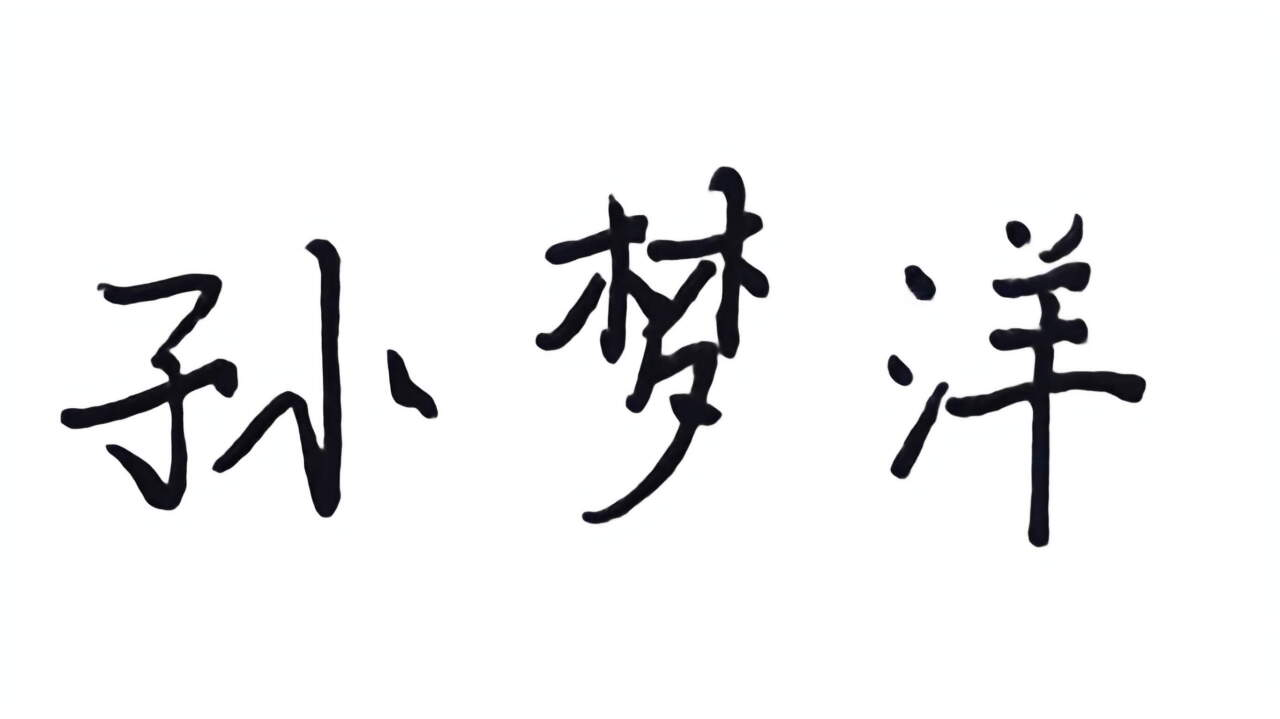 孙梦洋